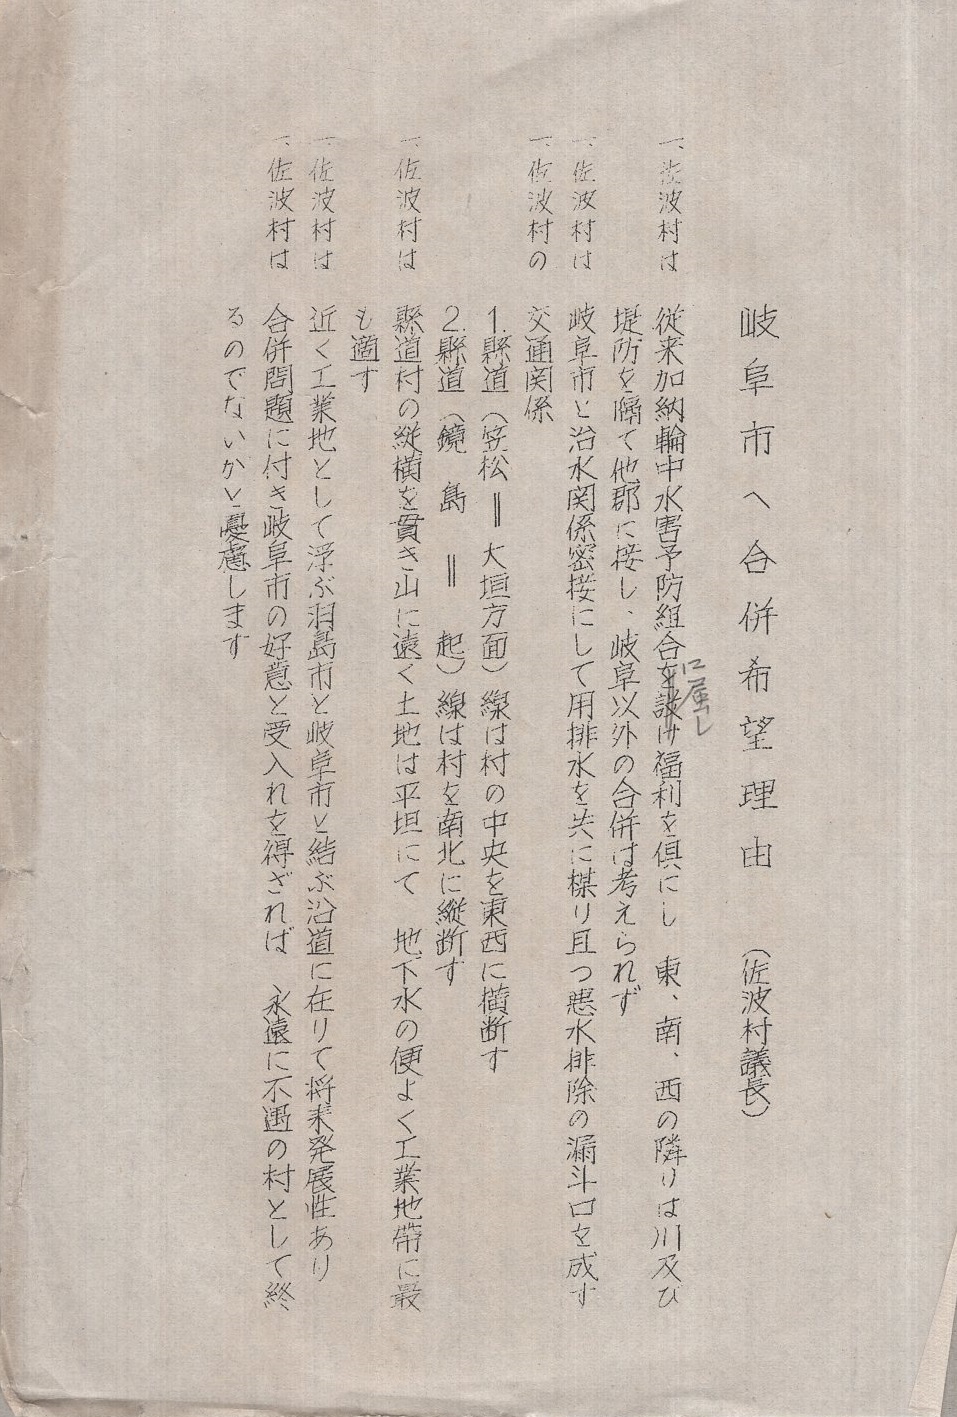 岐阜市へ合併希望理由 (佐波村議長)
一、佐波村は 従来加納輪中水害予防組合を設け福利を倶にし 東、南、西の隣りは川及び
に属し
堤防を隔て他郡に接し、岐阜以外の合併は考えられず
一、佐波村は 岐阜市と治水関係密接にして用排水を共に楳り且つ悪水排除の漏斗口を成す
一、佐波村の 交通関係
1.縣道(笠松=大垣方面)線は村の中央を東西に横断す
2.縣道(鏡島=起)線は村を南北に縦断す
一、佐波村は 縣道村の縦横を貫き山に遠く土地は平坦にて 地下水の便よく工業地帯に最
も適す
一、佐波村は 近く工業地として浮ぶ羽島市と岐阜市と結ぶ沿道に在りて将来発展性あり
一、佐波村は 合併問題に付き岐阜市の好意と受入れを得ざれば 永遠に不遇の村として終
るのでないかと憂慮します